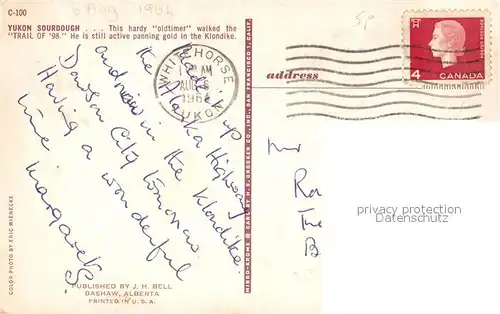 C-100
6 Aug 1964
SP
YUKON SOURDOUGH . . . This hardy "oldtimer" walked the
"TRAIL OF '98." He is still active panning gold in the Klondike.
WHITEHORSE
AM
AUG
YUKON
4
CANADA
address
up
the Alaska Highway
and now in the Klondike.
Dawson City tomorrow.
Having a wonderful
time
Margaret
Mr
privacy protection
Datenschutz
COLOR PHOTO BY ERIC WIENECKE
MIRRO-KROME ® CARD BY H. S. CROCKER CO., INC., SAN FRANCISCO 1, CALIF.
PUBLISHED BY J. H. BELL
BASHAW, ALBERTA
PRINTED IN U. S. A.